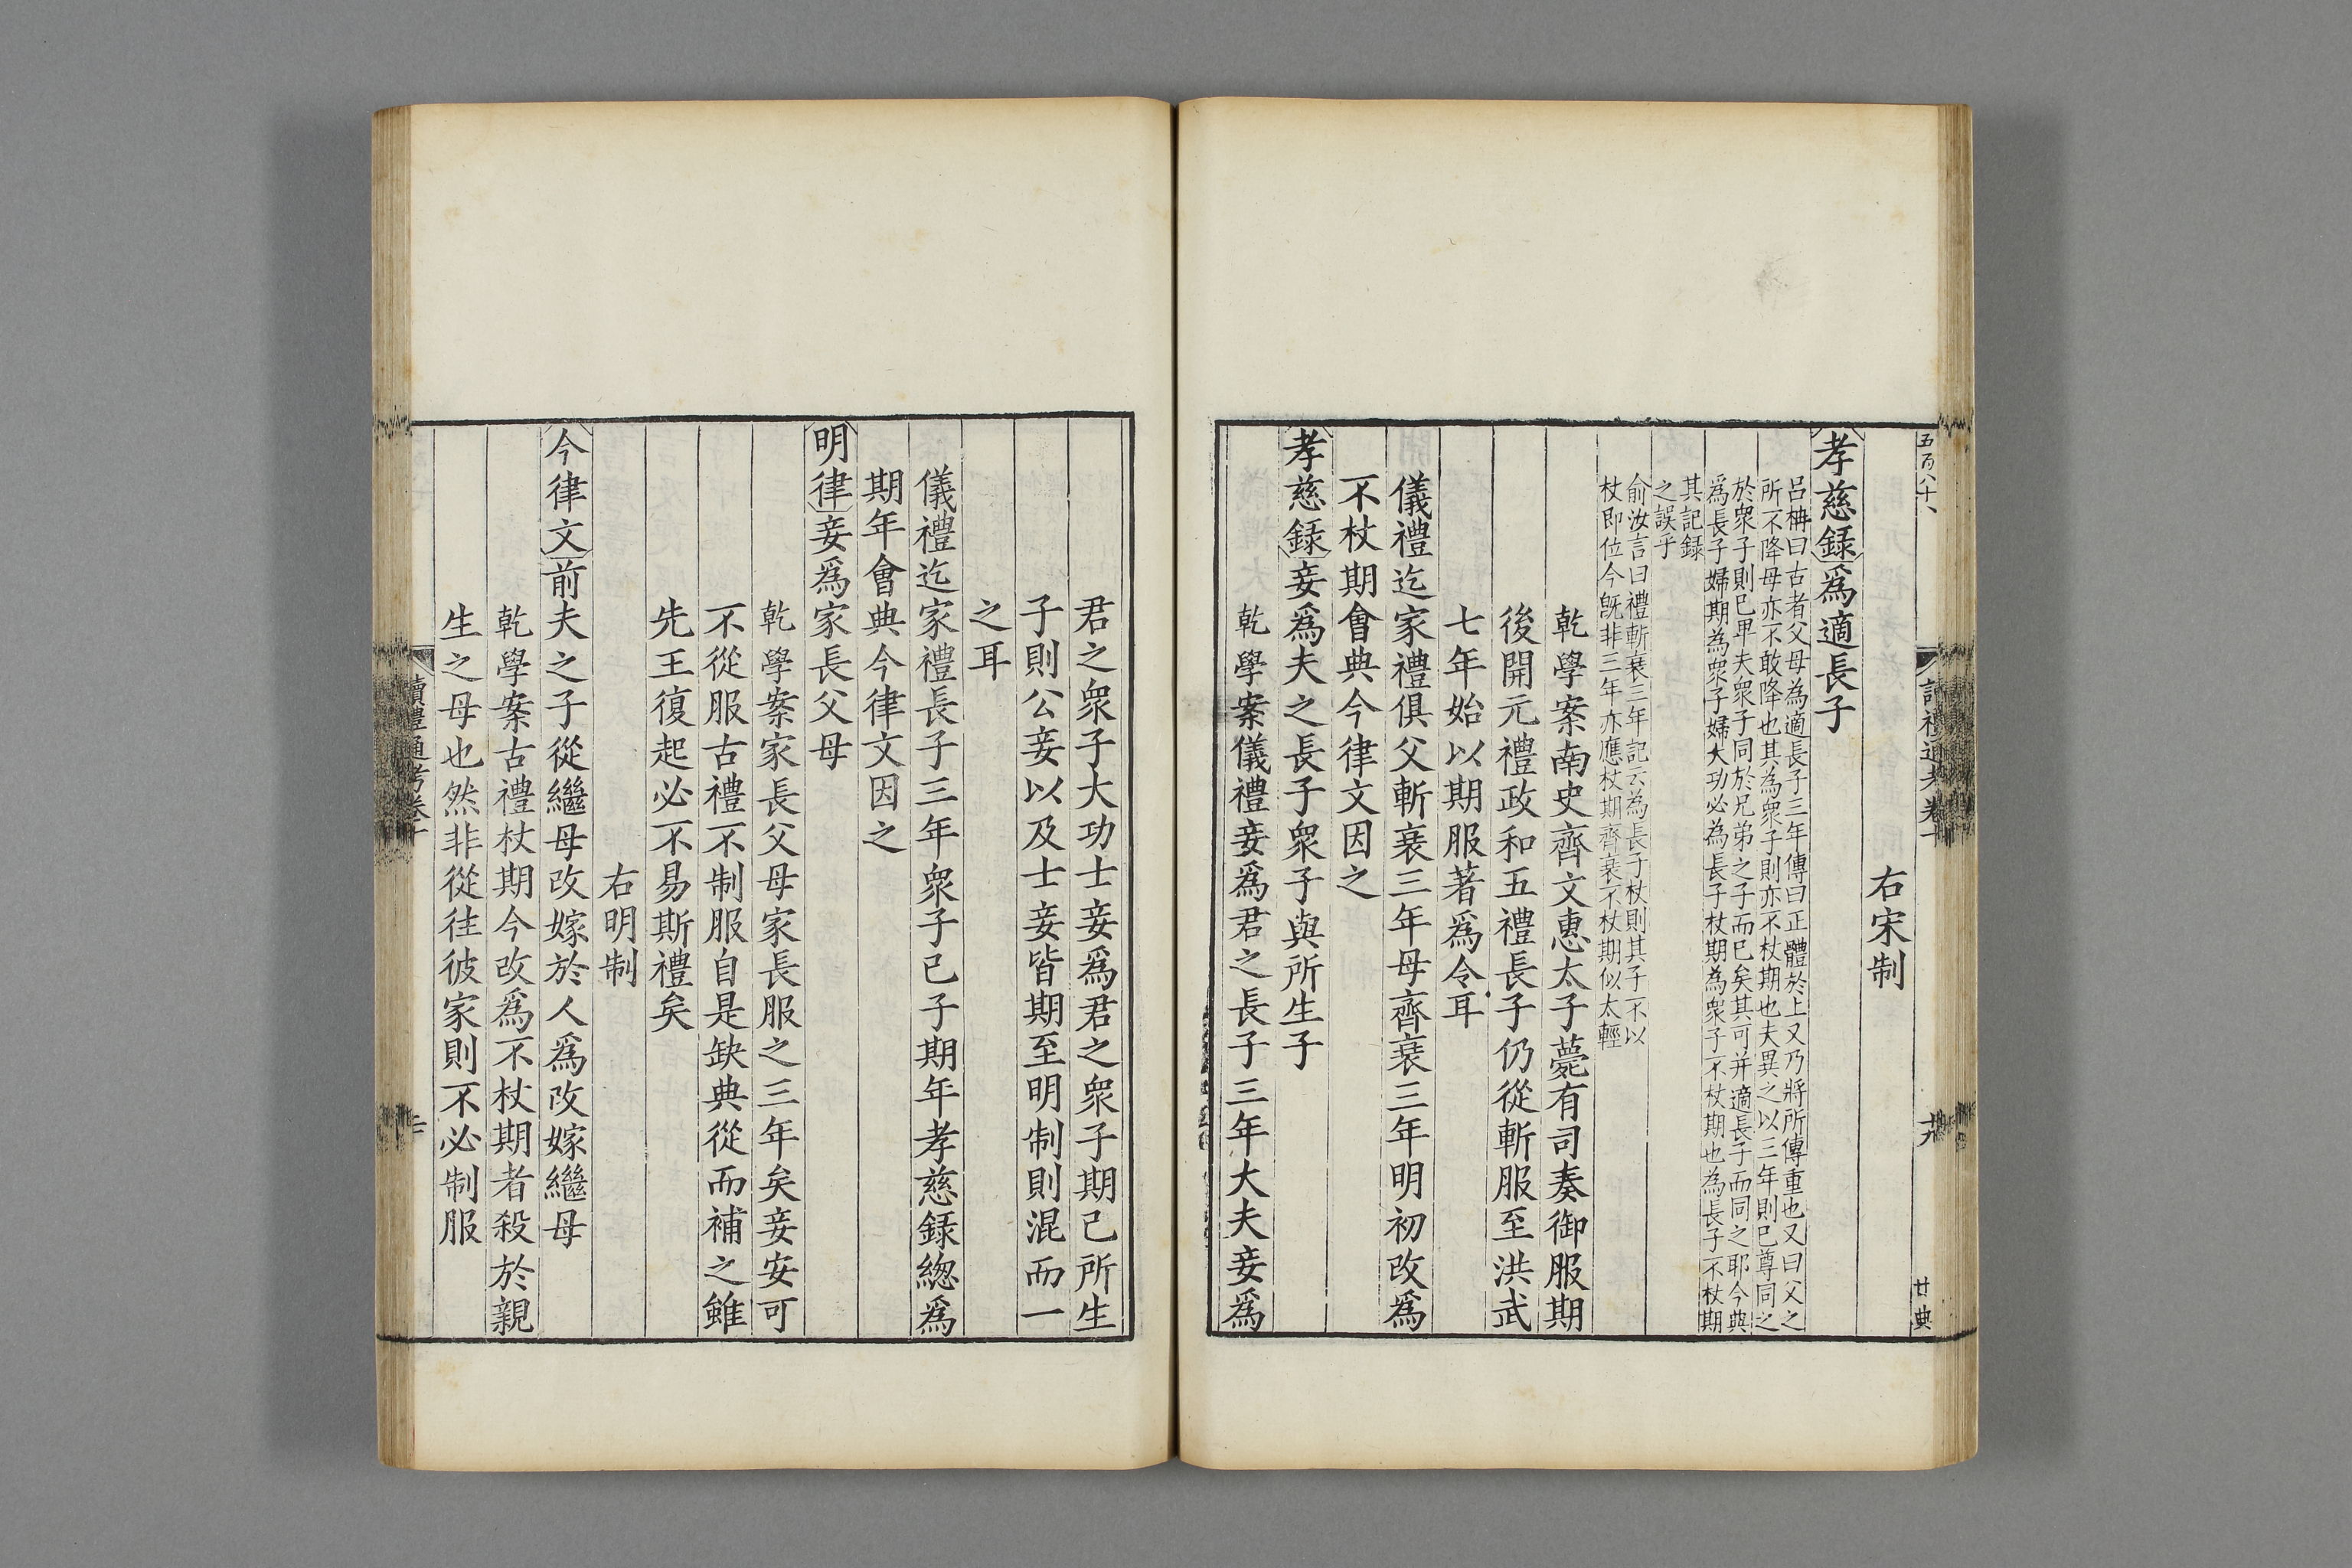 五百八十
讀禮通考卷十
十九
廿典
右宋制
孝慈録爲適長子
呂柟曰古者父母為適長子三年傳曰正體於上又乃將所傳重也又曰父之
所不降母亦不敢降也其為衆子則亦不杖期也夫異之以三年則已尊同之
於衆子則已卑夫衆子同於兄弟之子而已矣其可并適長子而同之耶今典
爲長子婦期為衆子婦大功必為長子杖期為衆子不杖期也為長子不杖期
其記録
之誤乎
俞汝言曰禮斬衰三年記云為長子杖則其子不以
杖即位今既非三年亦應杖期齊衰不杖期似太輕
乾學案南史齊文惠太子薨有司奏御服期
後開元禮政和五禮長子仍從斬服至洪武
七年始以期服著爲令耳
儀禮迄家禮俱父斬衰三年母齊衰三年明初改爲
不杖期會典今律文因之
孝慈録妾爲夫之長子衆子與所生子
乾學案儀禮妾爲君之長子三年大夫妾爲
君之衆子大功士妾爲君之衆子期己所生
子則公妾以及士妾皆期至明制則混而一
之耳
儀禮迄家禮長子三年衆子己子期年孝慈録緫爲
期年會典今律文因之
明律妾爲家長父母
乾學案家長父母家長服之三年矣妾安可
不從服古禮不制服自是缺典從而補之雖
先王復起必不易斯禮矣
右明制
今律文前夫之子從繼母改嫁於人爲改嫁繼母
乾學案古禮杖期今改爲不杖期者殺於親
生之母也然非從徃彼家則不必制服
讀禮通考卷十